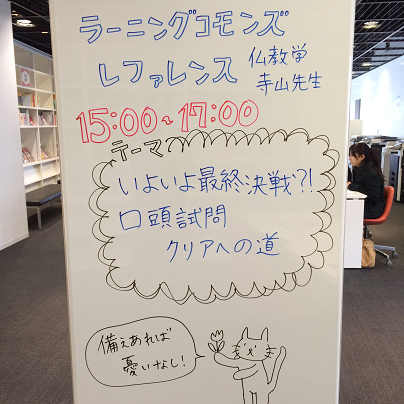 ラーニングコモンズ
レファレンス 仏教学
寺山先生
15:00~17:00
テーマ
いよいよ最終決戦?!
口頭試問
クリアへの道
備えあれば
憂いなし!